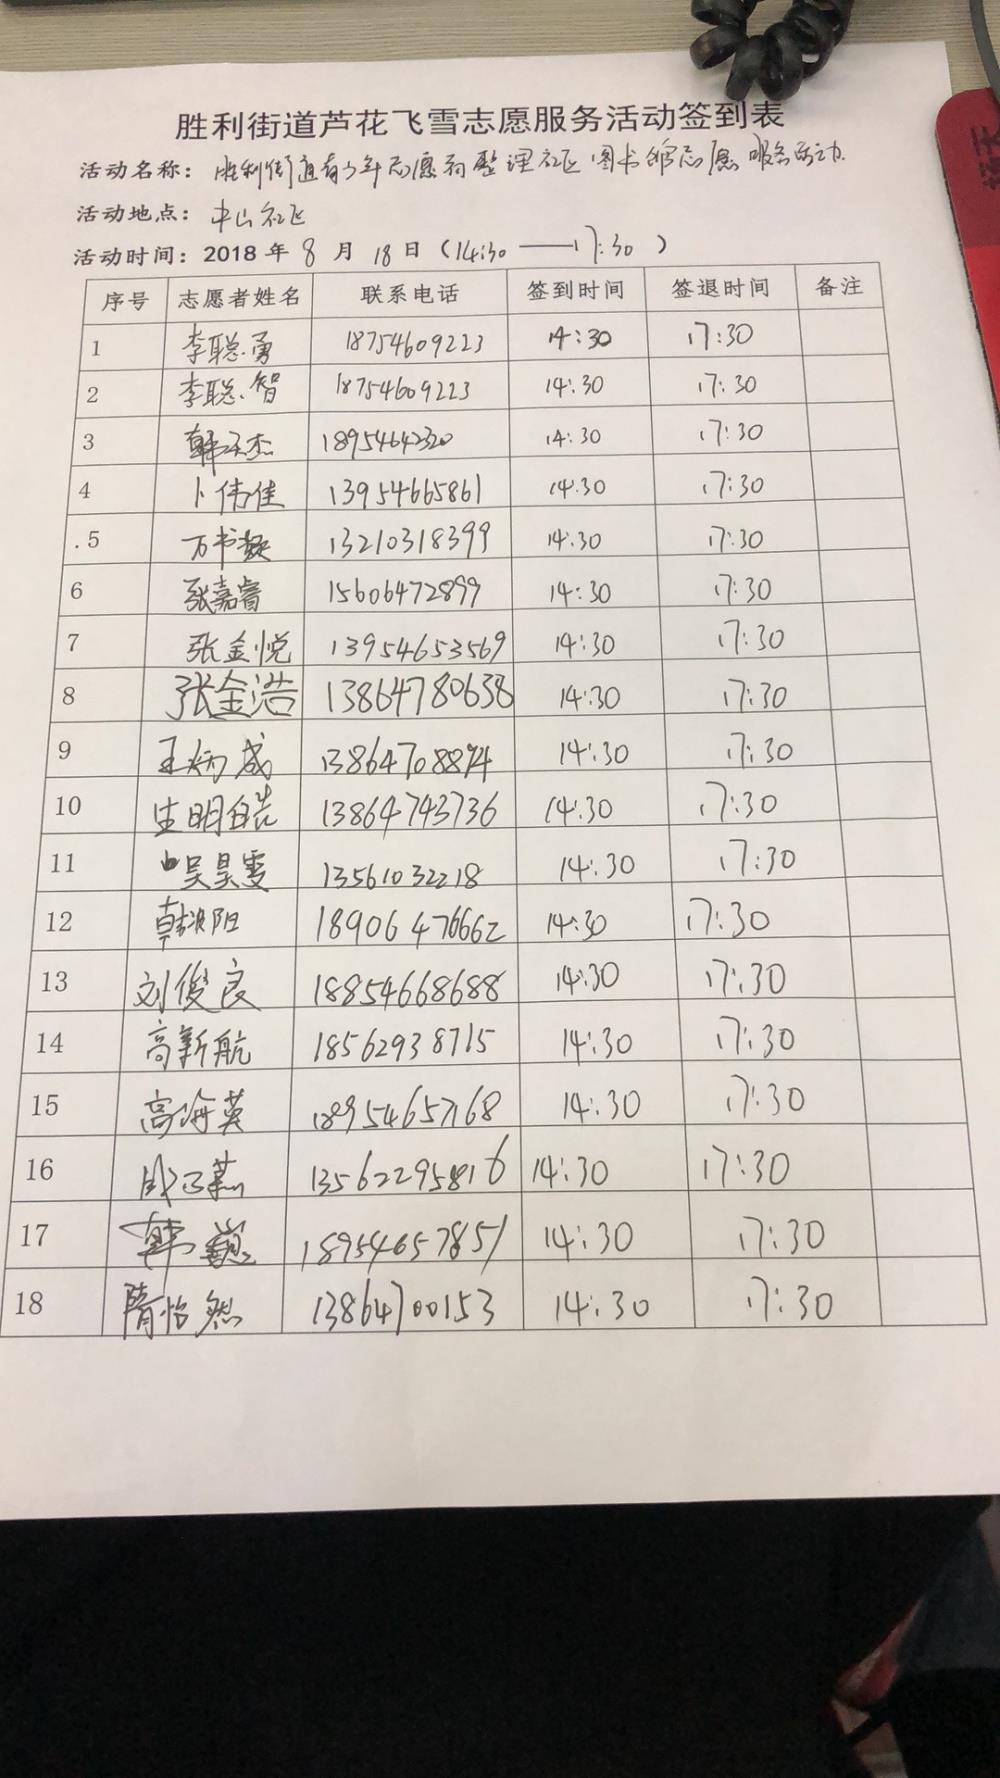 胜利街道芦花飞雪志愿服务活动签到表
活动名称: 胜利街道青少年志愿者整理社区图书馆志愿服务活动.
活动地点: 中山社区
活动时间: 2018 年 8 月 18 日 (14:30 —— 17:30 )
序号 志愿者姓名 联系电话 签到时间 签退时间 备注
1 李聪勇 18754609223 14:30 17:30
2 李聪智 18754609223 14:30 17:30
3 韩子杰 18954642320 14:30 17:30
4 卜伟佳 13954665861 14:30 17:30
.5 万书凝 13210318399 14:30 17:30
6 张嘉睿 15606472899 14:30 17:30
7 张金悦 13954653569 14:30 17:30
8 张金浩 13864780638 14:30 17:30
9 王炳成 13864708894 14:30 17:30
10 生明皓 13864743736 14:30 17:30
11 吴昊雯 13561032218 14:30 17:30
12 韩阳 18906476662 14:30 17:30
13 刘俊良 18854668688 14:30 17:30
14 高新航 18562938715 14:30 17:30
15 高海英 18954657168 14:30 17:30
16 13562295816 14:30 17:30
17 韩巍 18954657851 14:30 17:30
18 隋怡然 13864700153 14:30 17:30